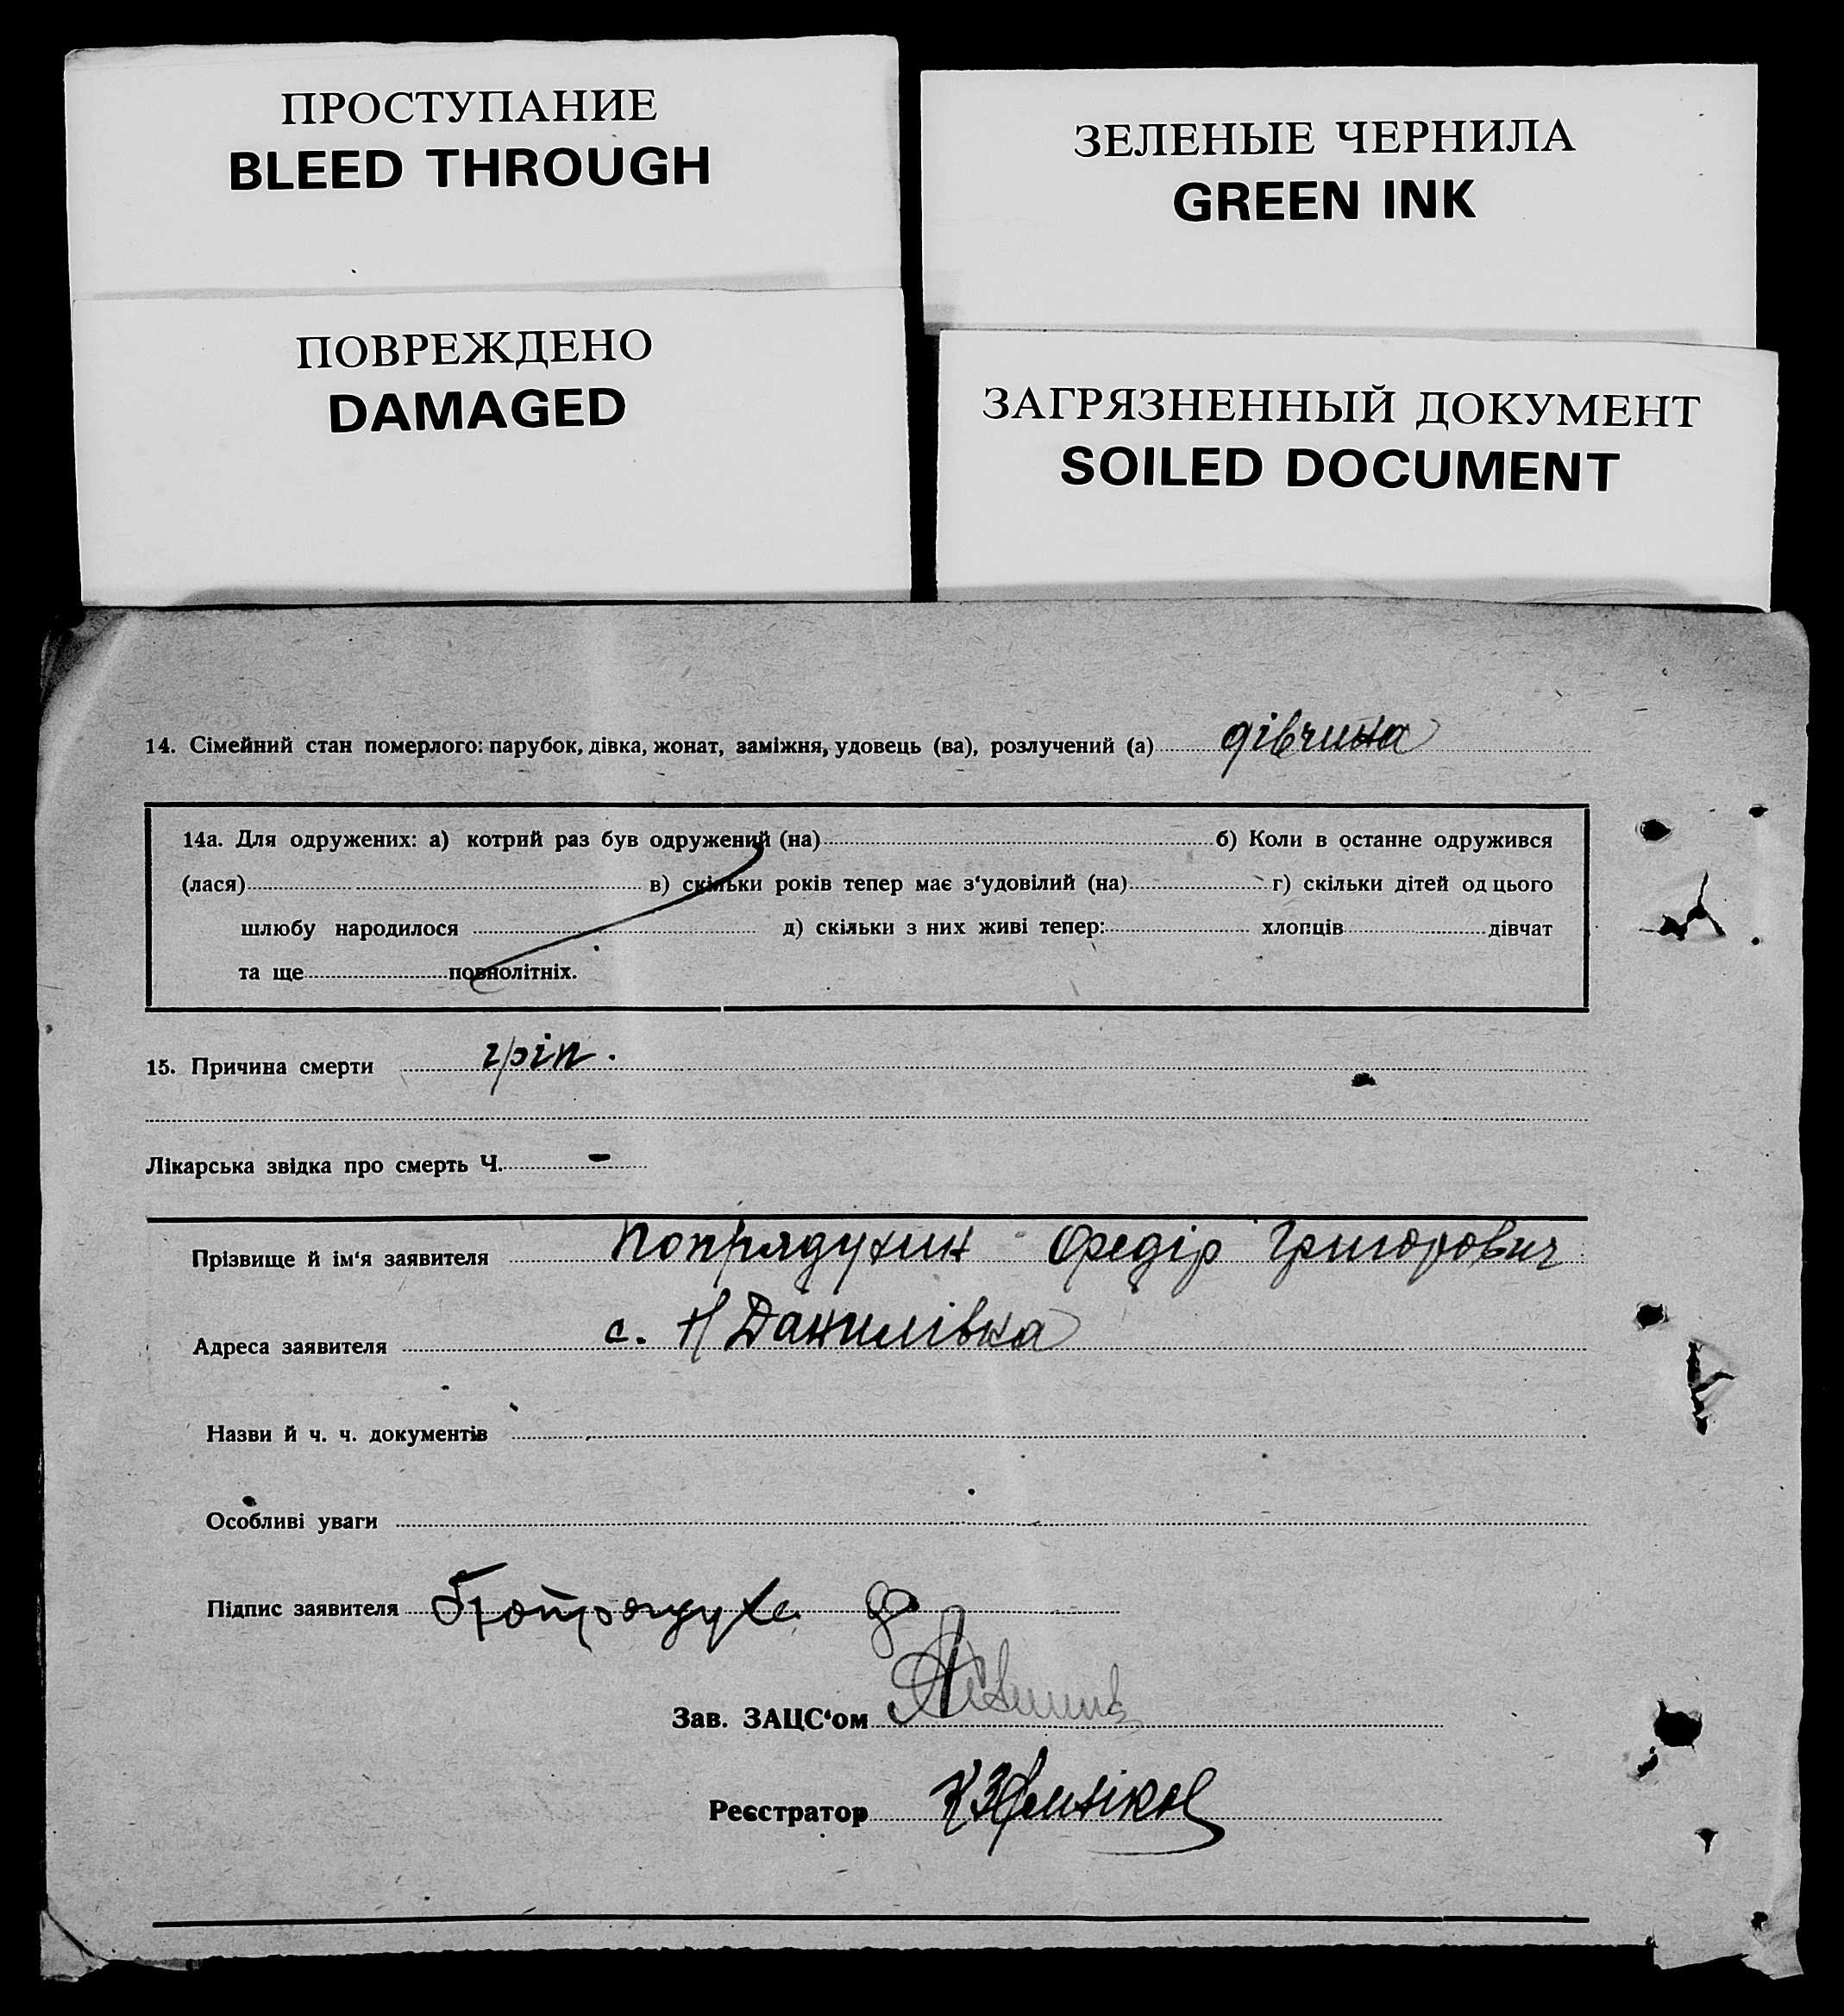 ПРОСТУПАНИЕ
BLEED THROUGH
ЗЕЛЕНЫЕ ЧЕРНИЛА
GREEN INK
ПОВРЕЖДЕНО
DAMAGED
ЗАГРЯЗНЕННЫЙ ДОКУМЕНТ
SOILED DOCUMENT
14. Сімейний стан померлого: парубок, дівка, жонат, заміжня, удовець (ва), розлучений (а) дівчина
14а. Для одружених: а) котрий раз був одружений (на) б) Коли в останне одружився
(лася) в) скільки років тепер має з‘удовілий (на) г) скільки дітей од цього
шлюбу народилося д) скільки з них живі тепер: хлопців дівчат
та ще повнолітніх.
15. Причина смерти гріп.
Лікарська звідка про смерть Ч. -
Прізвище й ім‘я заявителя Попрядухин Федір Григорович
Адреса заявителя с. Н Данилівка
Назви й ч. ч. документів
Особливі уваги
Підпис заявителя
Зав. ЗАЦС‘ом
Реєстратор